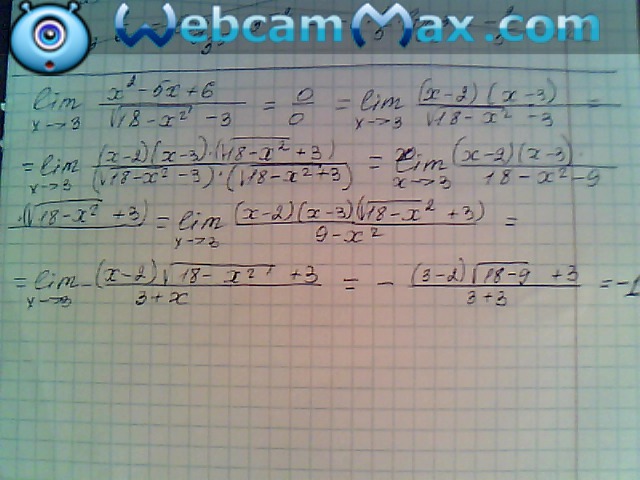 WebcamMax.com
lim x→3 (x²-5x+6)/(√18-x² -3) = 0/0 = lim x→3 (x-2)(x-3)/(√18-x² -3) =
= lim x→3 (x-2)(x-3)·(√18-x² +3)/(√18-x² -3)·(√18-x²+3) = lim x→3 (x-2)(x-3)·/18-x²-9
·(√18-x² +3) = lim x→3 (x-2)(x-3)(√18-x² +3)/9-x² =
= lim x→3 -(x-2)√18-x² +3/3+x = - (3-2)√18-9 +3/3+3 = -1